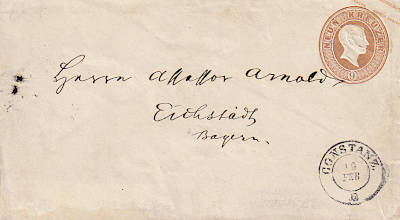 NEUN KREUZER
9
Herrn Assessor Arnold,
Eichstädt
Bayern.
CONSTANZ
FEB